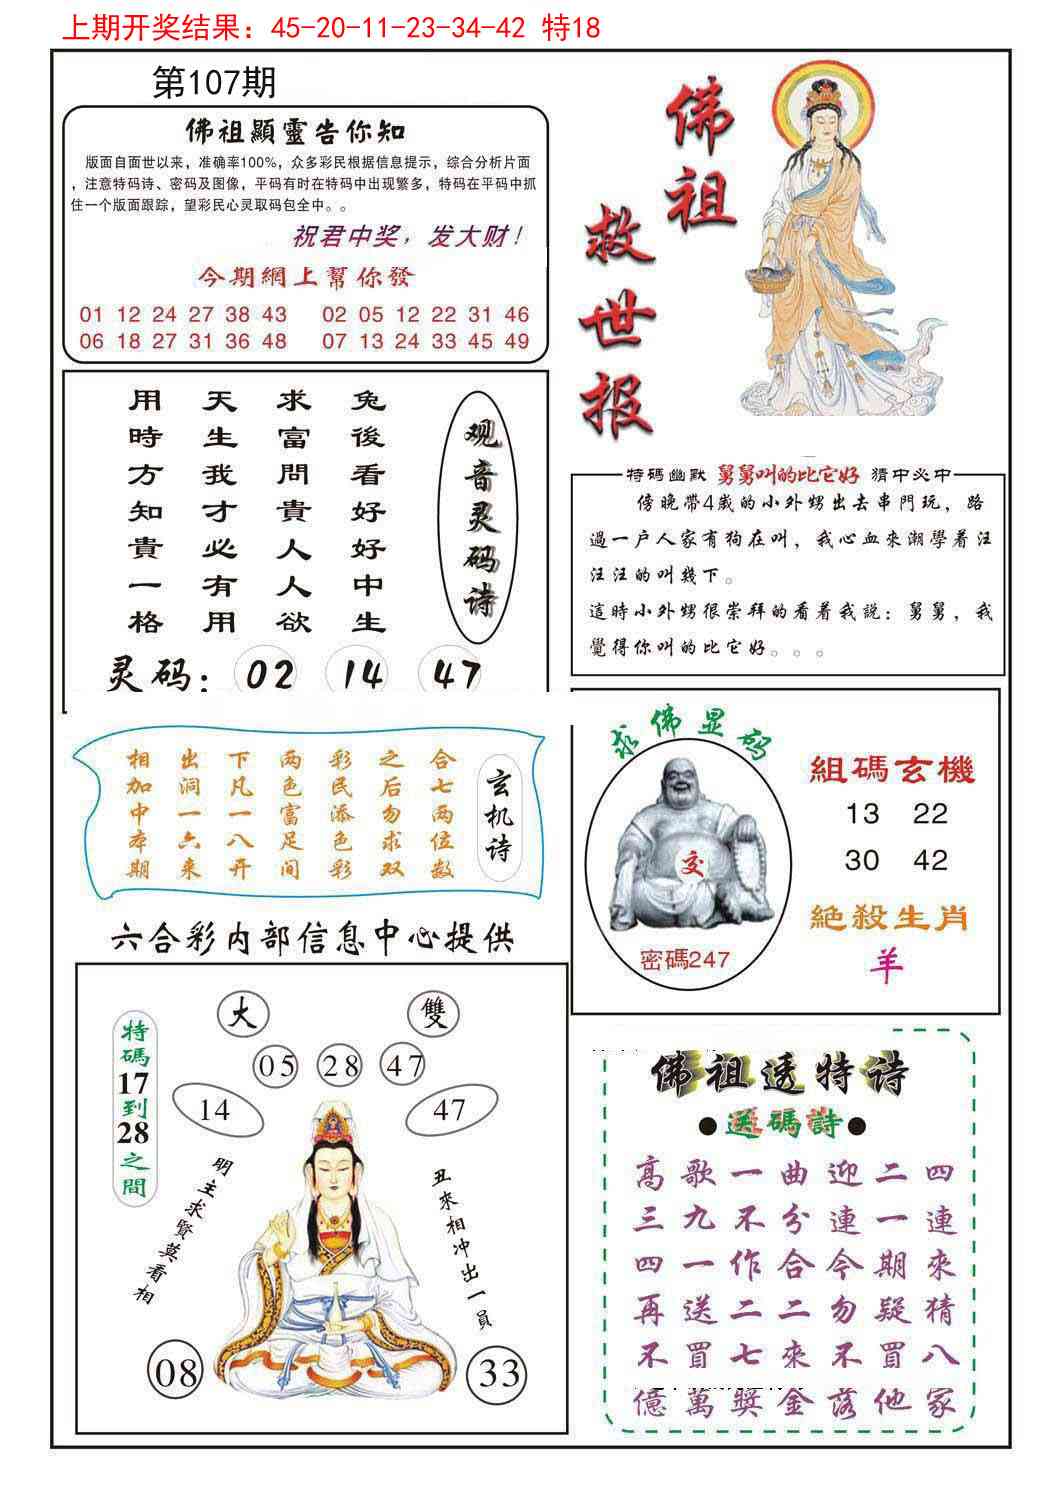 上期开奖结果：45-20-11-23-34-42 特18
第107期
佛祖顯靈告你知
版面自面世以来，准确率100%，众多彩民根据信息提示，综合分析片面
，注意特码诗、密码及图像，平码有时在特码中出现繁多，特码在平码中抓
住一个版面跟踪，望彩民心灵取码包全中。。
祝君中奖，发大财！
今期網上幫你發
01 12 24 27 38 43 02 05 12 22 31 46
06 18 27 31 36 48 07 13 24 33 45 49
佛祖
救世报
观音灵码诗
兔後看好好中生
求富問貴人人欲
天生我才必有用
用時方知貴一格
灵码：02 14 47
特碼幽默 舅舅叫的比它好 猜中必中
傍晚帶4歲的小外甥出去串門玩，路
過一户人家有狗在叫，我心血來潮學着汪
汪汪的叫幾下。
這時小外甥很崇拜的看着我説：舅舅，我
覺得你叫的比它好。。。
玄机诗
合七两位数
之后勿求双
彩民添色彩
两色富足间
下凡一八开
出洞一六来
相加中本期
求佛显码
交
密碼247
組碼玄機
13 22
30 42
絕殺生肖
羊
六合彩内部信息中心提供
特碼17到28之間
大 雙
05 28 47
14 47
明主求賢莫看相
丑來相冲出一員
08 33
佛祖透特诗
●送碼詩●
高歌一曲迎二四
三九不分連一連
四一作合今期來
再送二二勿疑猜
不買七來不買八
億萬獎金落他家